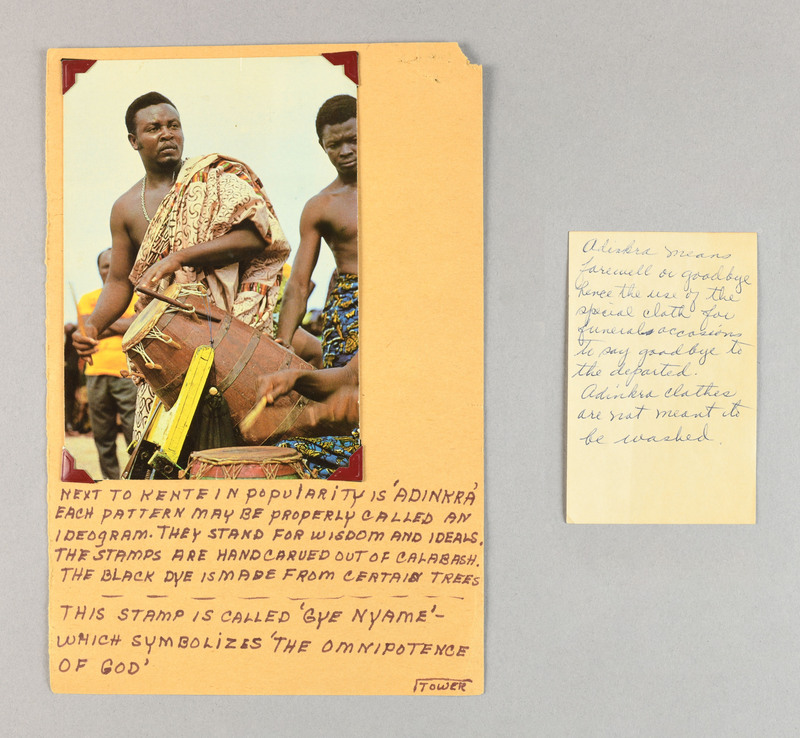 NEXT TO KENTE IN POPULARITY IS 'ADINKRA'
EACH PATTERN MAY BE PROPERLY CALLED AN
IDEOGRAM. THEY STAND FOR WISDOM AND IDEALS.
THE STAMPS ARE HANDCARVED OUT OF CALABASH.
THE BLACK DYE IS MADE FROM CERTAIN TREES
THIS STAMP IS CALLED 'GYE NYAME'-
WHICH SYMBOLIZES 'THE OMNIPOTENCE
OF GOD'
TOWER
Adinkra means
farewell or goodbye
hence the use of the
special cloth for
funerals occasions
to say goodbye to
the departed.
Adinkra clothes
are not meant to
be washed.